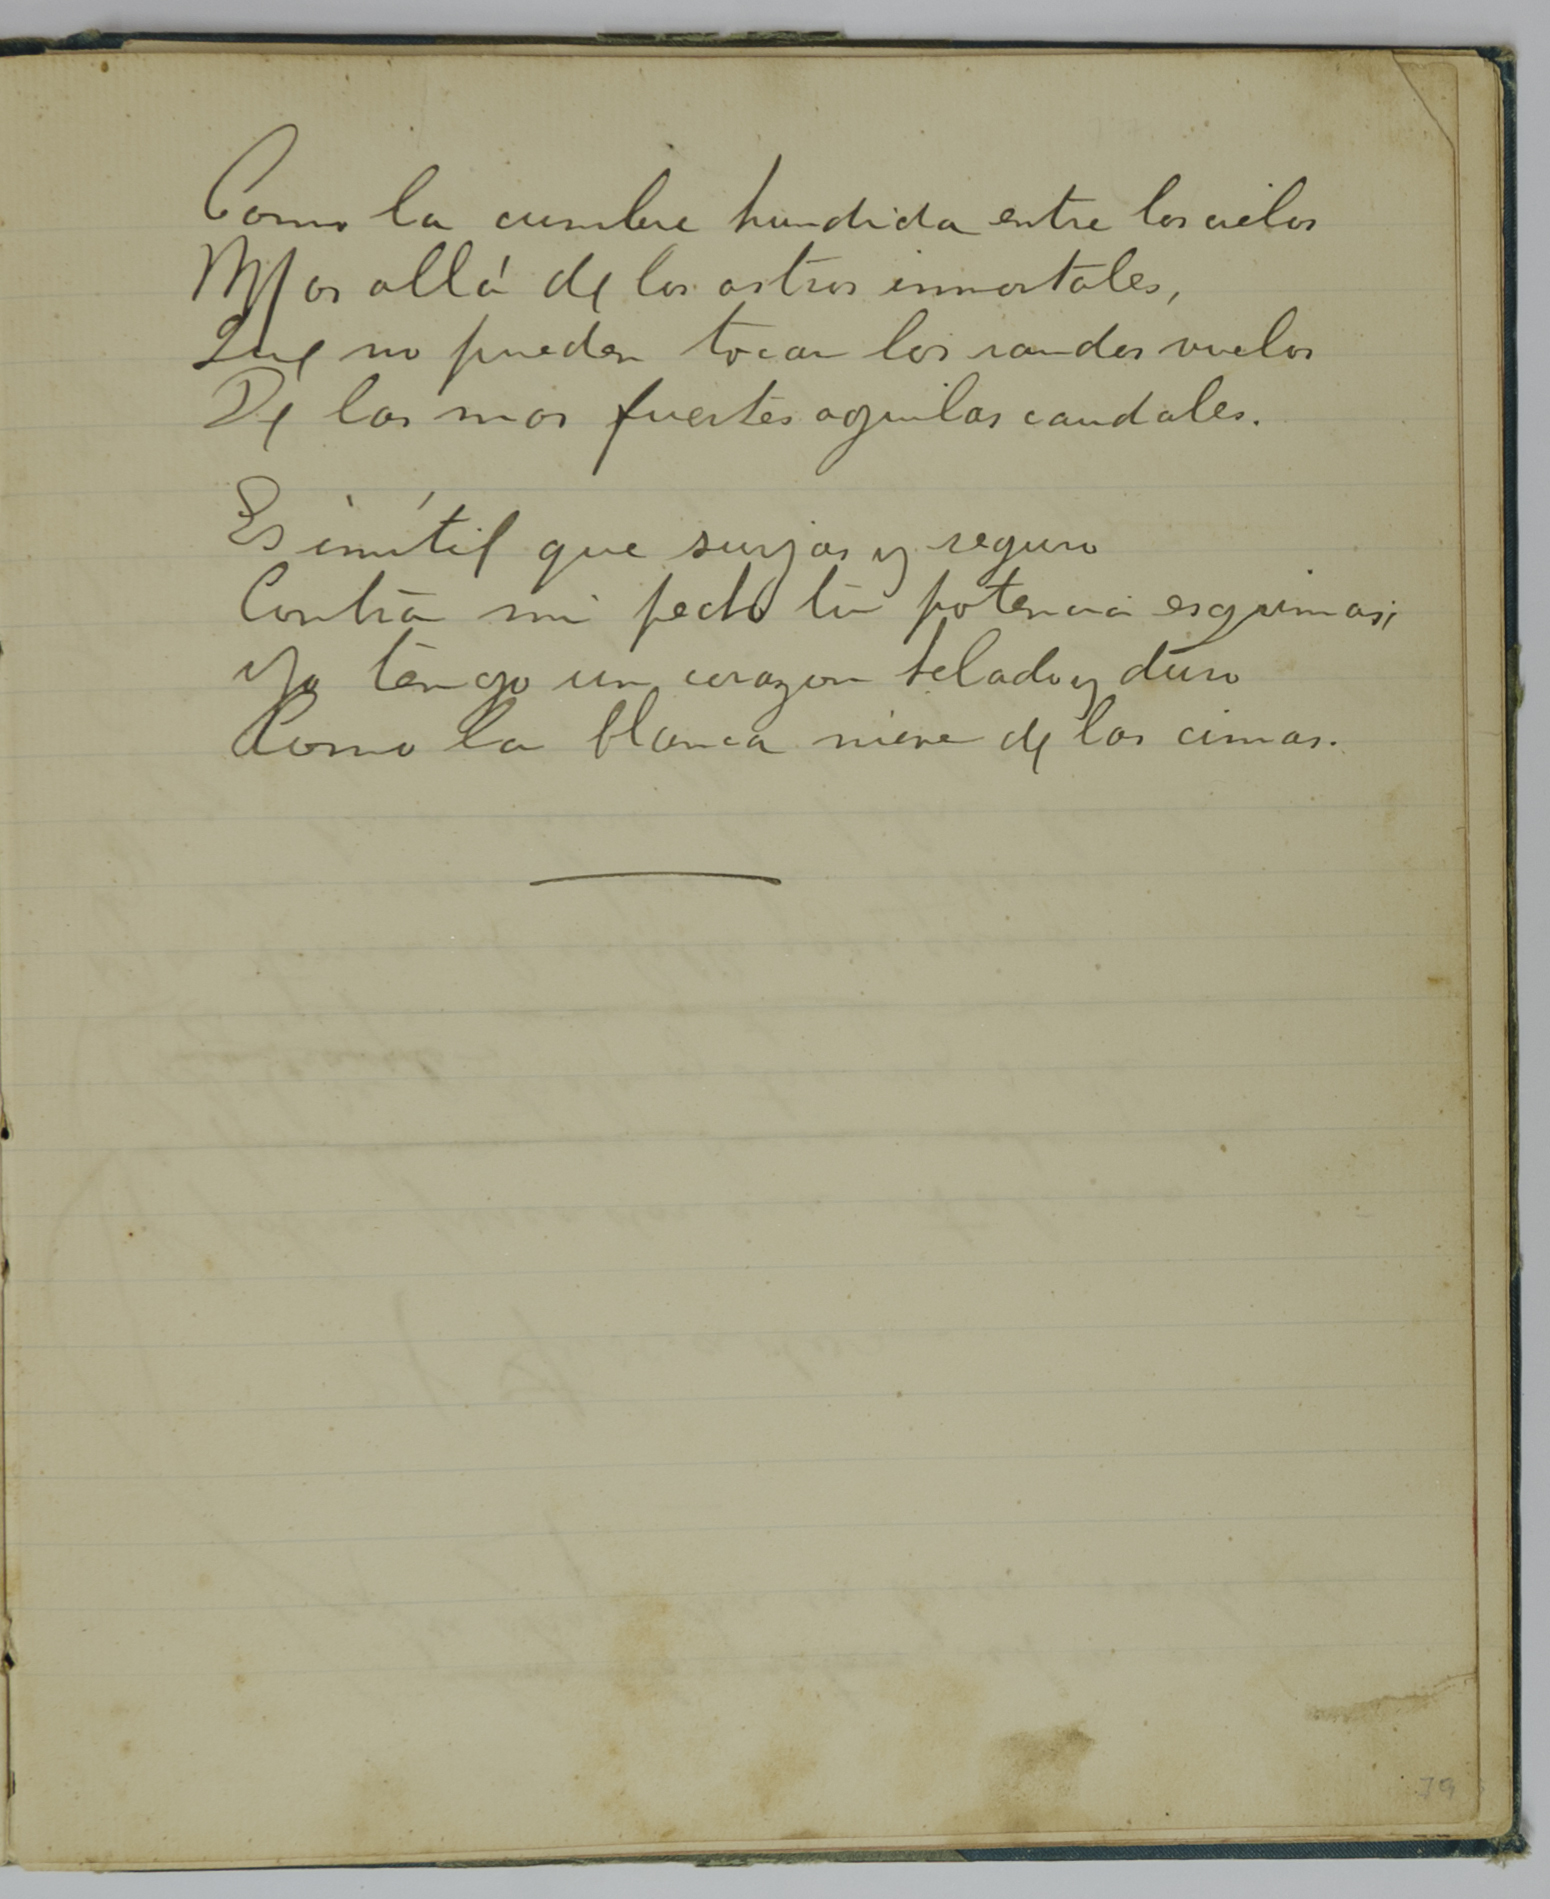 Como la cumbre hundida entre los cielos
Mas allá de los astros inmortales,
Que no pueden tocar los raudos vuelos
De las mas fuertes aguilas caudales.
Es inútil que surjas y seguro
Contra mi pecho tu potencia esgrimas;
Yo tengo un corazon helado y duro
Como la blanca nieve de las cimas.
79